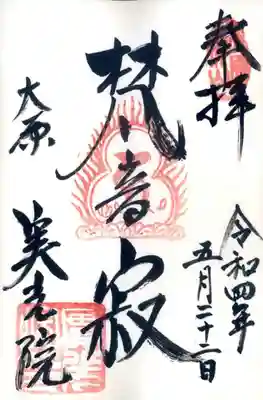 奉拝
令和四年
五月二十二日
梵音寂
大原
実光院